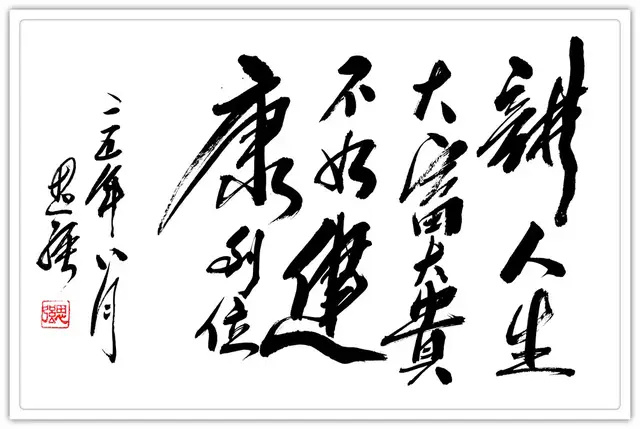 講人生
大富大貴
不如健
康到位
二五年八月
思強